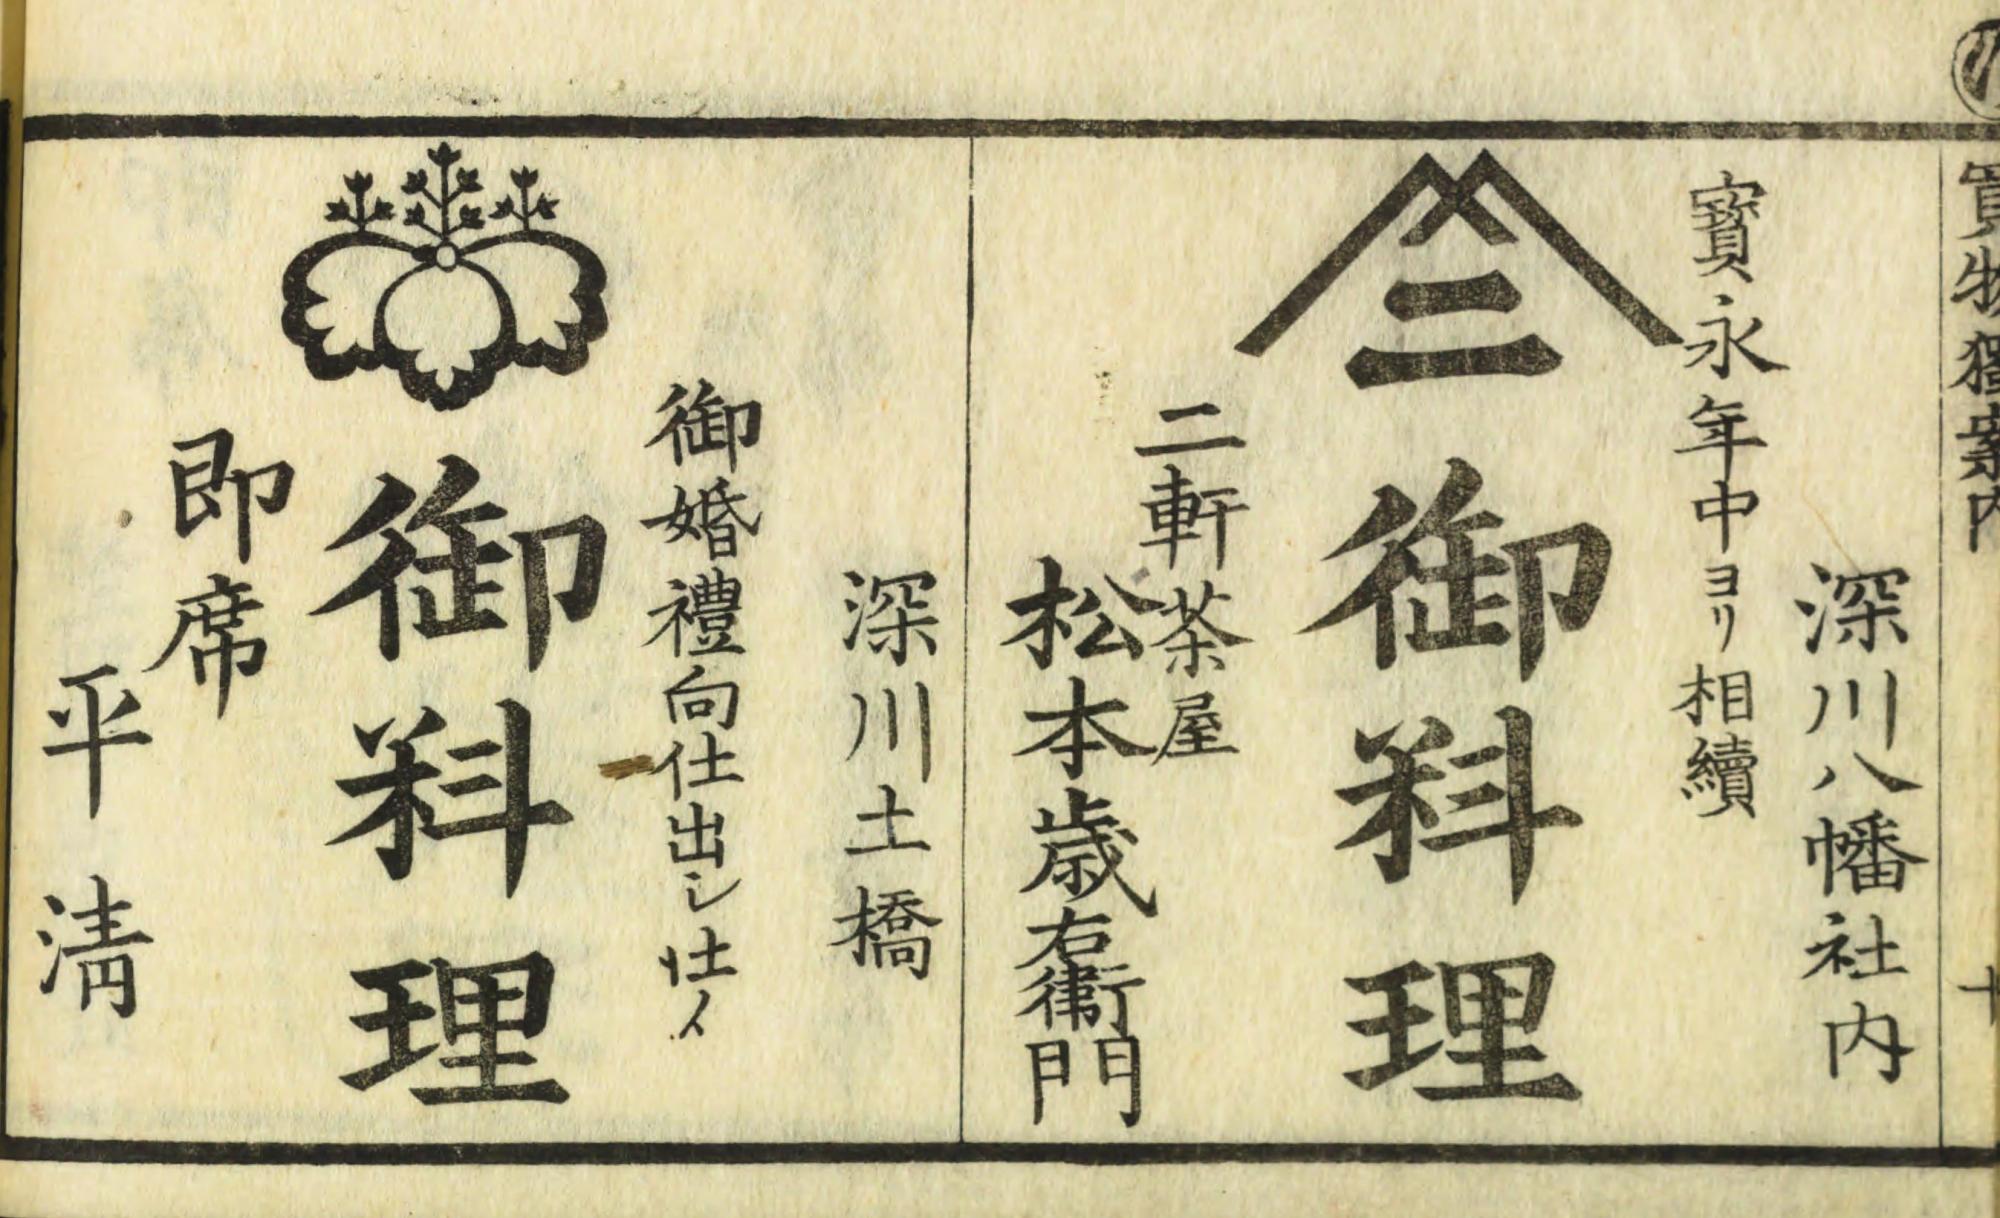 買物獨案内
十
深川八幡社内
寳永年中ヨリ相續
二
御料理
二軒茶屋
松本歳右衛門
深川土橋
御婚禮向仕出シ仕ㇵ
御料理
即席
平清